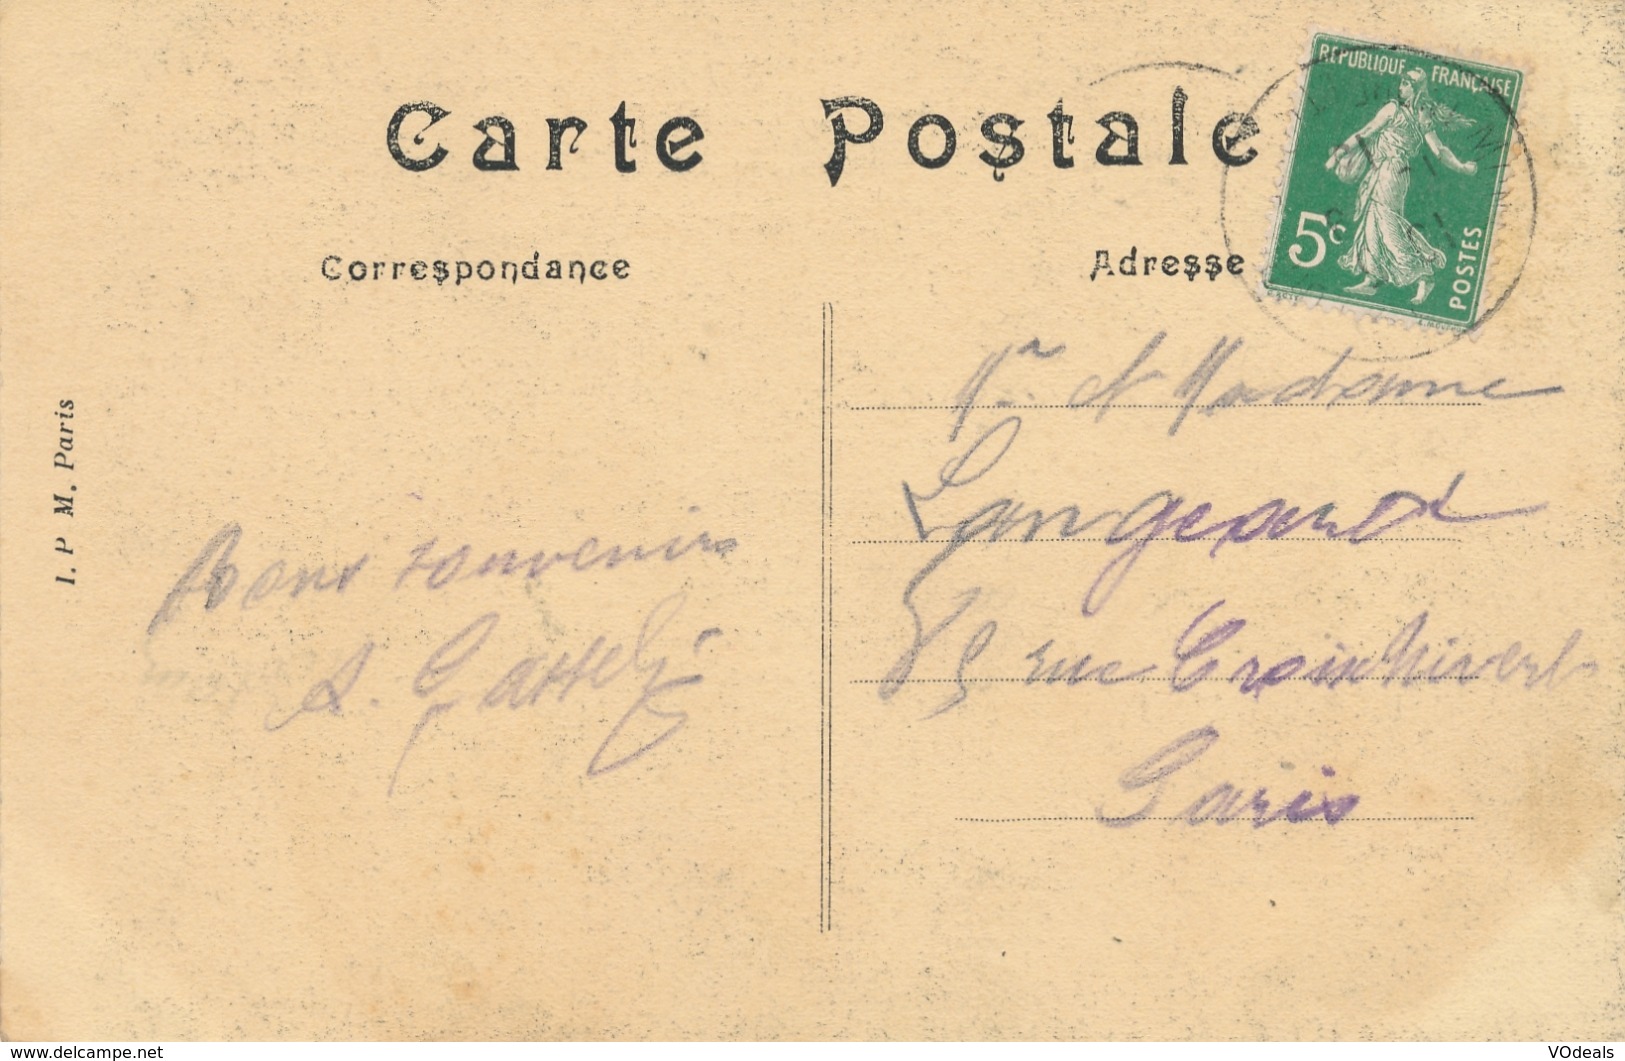 Carte Postale
Correspondance
Adresse
RÉPUBLIQUE FRANÇAISE
5c
POSTES
I. P M. Paris
Mr et Madame
rue Croix Nivert
Paris
Bons souvenirs
www.delcampe.net
VOdeals